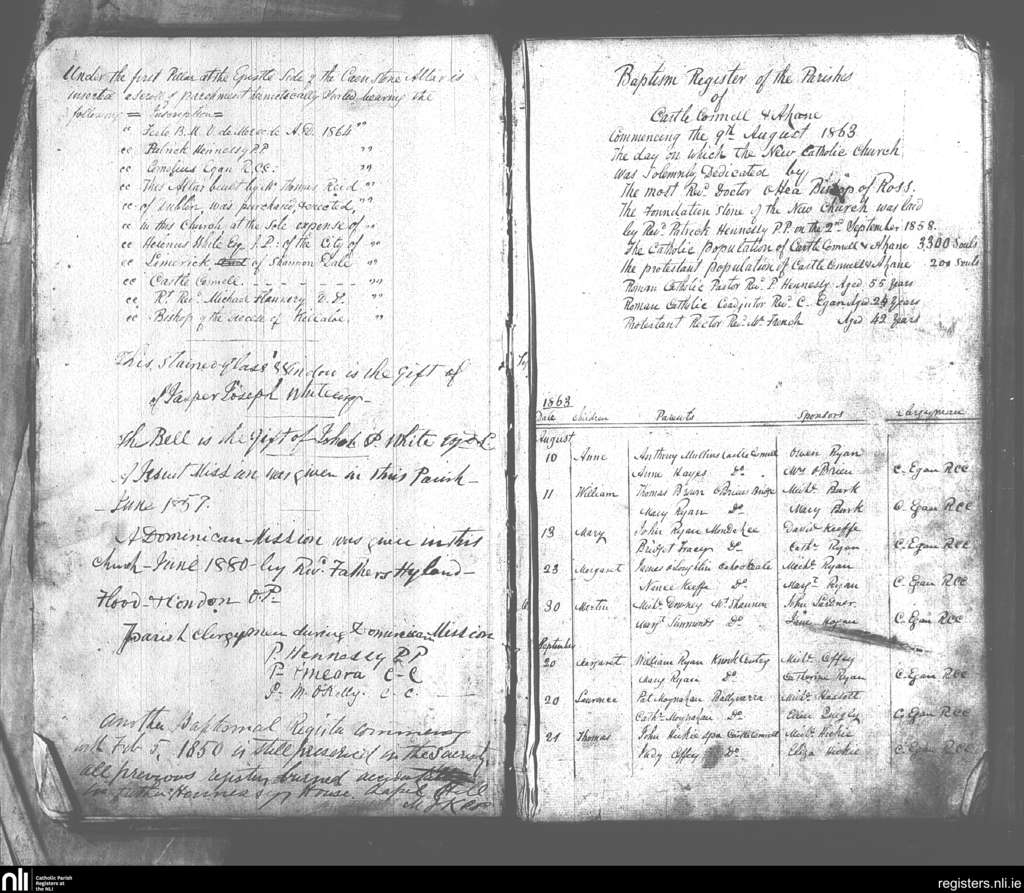 Under the first Pillar at the Epistle Side of the Caen Stone Altar is
inserted a scroll of parchment hermetically sealed bearing the
following = Inscription =
" Feste B. M. V. de Mercede A.D. 1864 ""
" Patrick Hennessy P.P ""
" Cornelius Egan R.C.C: ""
" This Altar built by Mr Thomas Reid "
" of Dublin was purchased, & erected, ""
" in this Church, at the Sole expense of "
" White Esq. J.P: of the City of "
" Limerick of Shannon Vale ""
" Castle Connell - - - - - - "
" Rt Revd Michael Flannery D.D. "
" Bishop of the diocese of Killaloe, "
This Stained glass Window is the Gift of
Jasper Joseph White esq-
The Bell is the Gift of John P White Esqr
A Jesuit Mission was given in this Parish-
- June 1857.
A Dominican Mission was given in this
church - June 1880 - by Revd Fathers Hyland -
Flood - & Condon O.P-
Parish clergymen during Dominican Mission
P Hennessy P.P
P- O'Meara C-C
P- M. O'Kelly. C-C.
Another Baptismal Register commencing
with Feb 5, 1850 is still preserved in the Sacristy
all previous registers burned
in Father Hennessy House. Chapel Hill
Baptism Register of the Parishes
of
Castle Connell & Ahane
Commencing the 9th August 1863
The day on which the New Catholic Church
was Solemnly Dedicated by
The most Revd Doctor O Hea Bishop of Ross.
The Foundation Stone of the New Church was laid
by Revd Patrick Hennessy P.P. on the 2nd September 1858.
The Catholic Population of Castle Connell & Ahane 3300 Souls
the protestant population of Castle Connell & Ahane 200 Souls
Roman Catholic Pastor Revd P Hennessy Aged 55 Years
Roman Catholic Coadjutor Revd C. Egan Aged Years
Protestant Rector Revd Mr French Aged 42 Years
1863
Date Children Parents Sponsors Clergyman
August
10 Anne Anthony Mullins Castle Connell Owen Ryan
Anne Hayes Do. Mrs O'Brien C. Egan RCC
11 William Thomas Brien O'Briens Bridge Michl Burk
Mary Ryan Do Mary Burk C. Egan RCC
13 Mary John Ryan David Keeffe
Bridget Tracey Do Cathe Ryan C. Egan RCC
23 Margaret James O'Loughlin Michl Ryan
Keeffe Do. Margt Ryan C. Egan RCC
30 Martin Michl Downey John Gardner
Margt Do. Jane Hogan C. Egan RCC
September
20 Margaret William Ryan Michl Coffey
Mary Ryan Do. Catherine Ryan C. Egan RCC
20 Laurence Pat Moynahan Michl
Cathe Moynahan Do. Ellen Quigly C. Egan RCC
21 Thomas John Hickie Castle Connell Michl Hickie
Coffey Do. Eliza Hickie C. Egan RCC
nli Catholic Parish
Registers at
the NLI
registers.nli.ie